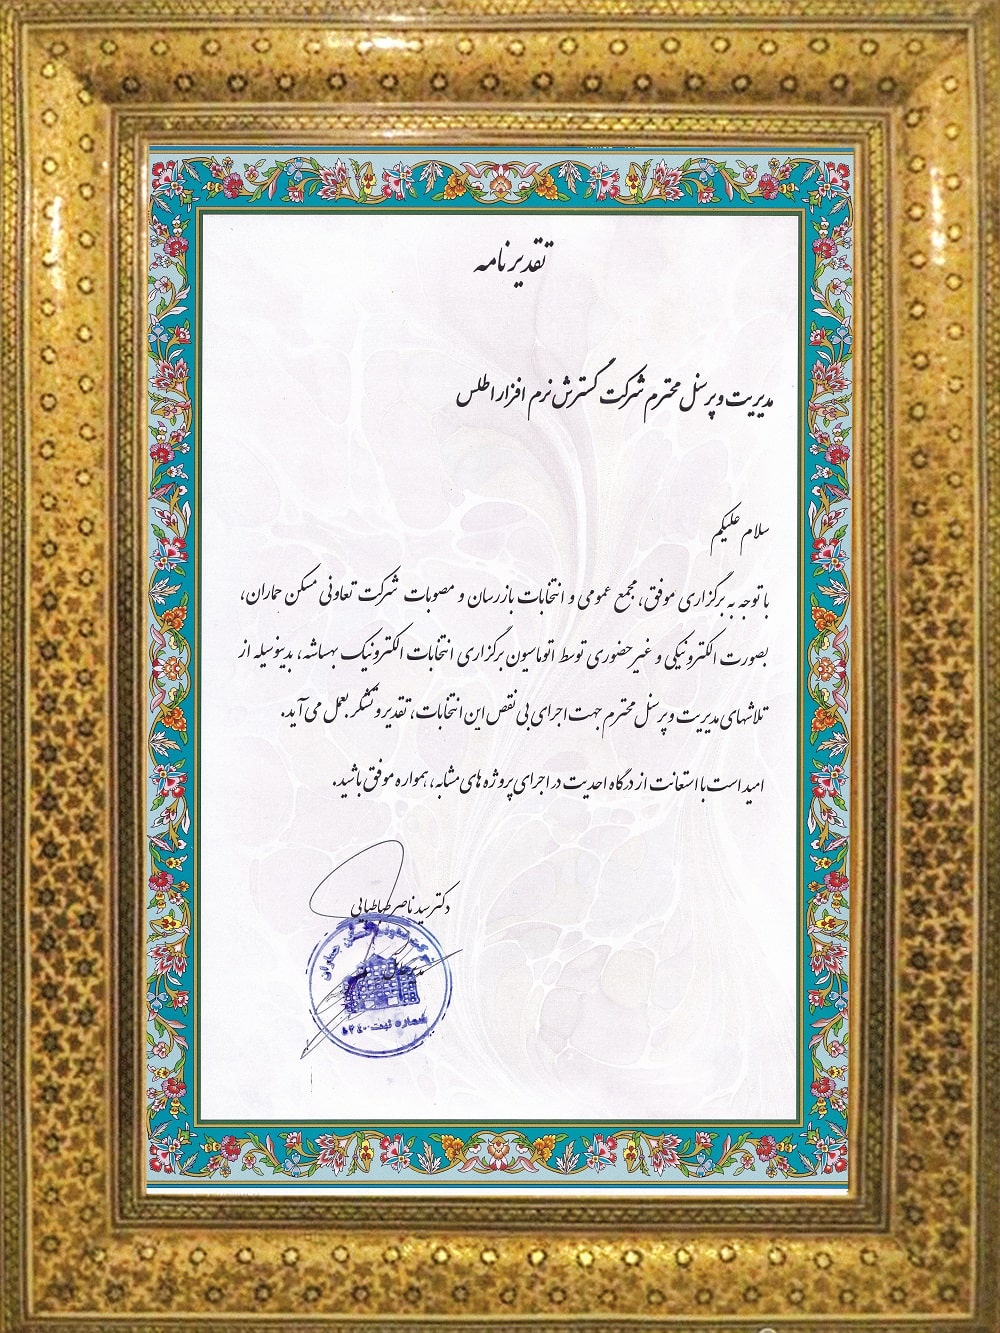 تقدیرنامه
مدیریت و پرسنل محترم شرکت گسترش نرم افزار اطلس
سلام علیکم
با توجه به برگزاری موفق، مجمع عمومی و انتخابات بازرسان و مصوبات شرکت تعاونی مسکن جماران،
بصورت الکترونیکی و غیرحضوری توسط اتوماسیون برگزاری انتخابات الکترونیک بهساشه، بدینوسیله از
تلاشهای مدیریت و پرسنل محترم جهت اجرای بی نقص این انتخابات، تقدیر و تشکر بعمل می آید.
امید است با استعانت از درگاه احدیت در اجرای پروژه های مشابه، همواره موفق باشید.
دکتر سید ناصر طباطبایی
شماره ثبت